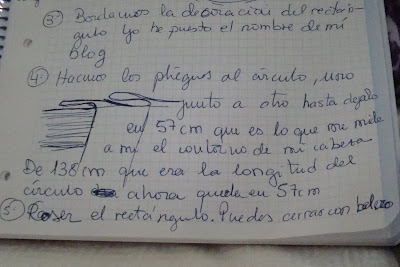 3º Bordamos la decoración del rectán-
gulo Yo he puesto el nombre de mi
blog
4º Hacemos los pliegues al círculo, uno
junto a otro hasta dejarlo
en 57cm que es lo que me mide
a mi el contorno de mi cabeza
De 138cm que era la longitud del
círculo ahora queda en 57cm
5º Coser el rectángulo. Puedes cerrar con